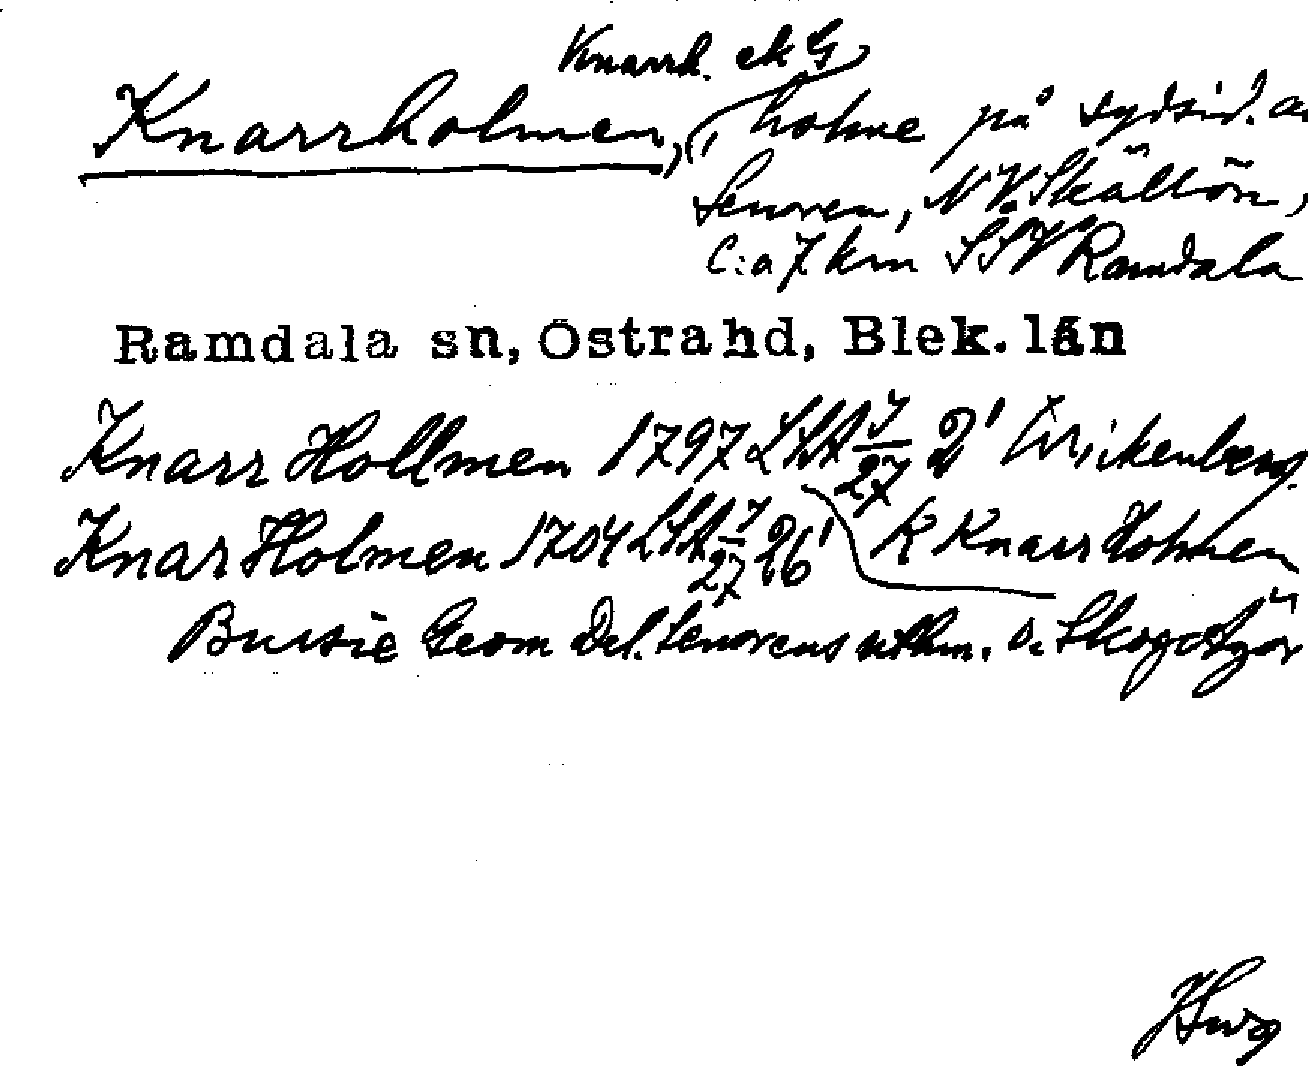 Knarrh. ek G
Knarrholmen, holme på sydsid. a
Senoren, NV. Skällön,
c:a 7 km SSV Ramdala
Ramdala sn, Östra hd, Blek. län
Knarr Hollmen 1797 LSA 7/27 2' Wickenberg.
Knar Holmen 1704 LSA 7/27 26' K Knarr Holmen
Geom Del. Senorens utm. o. Skogskjör